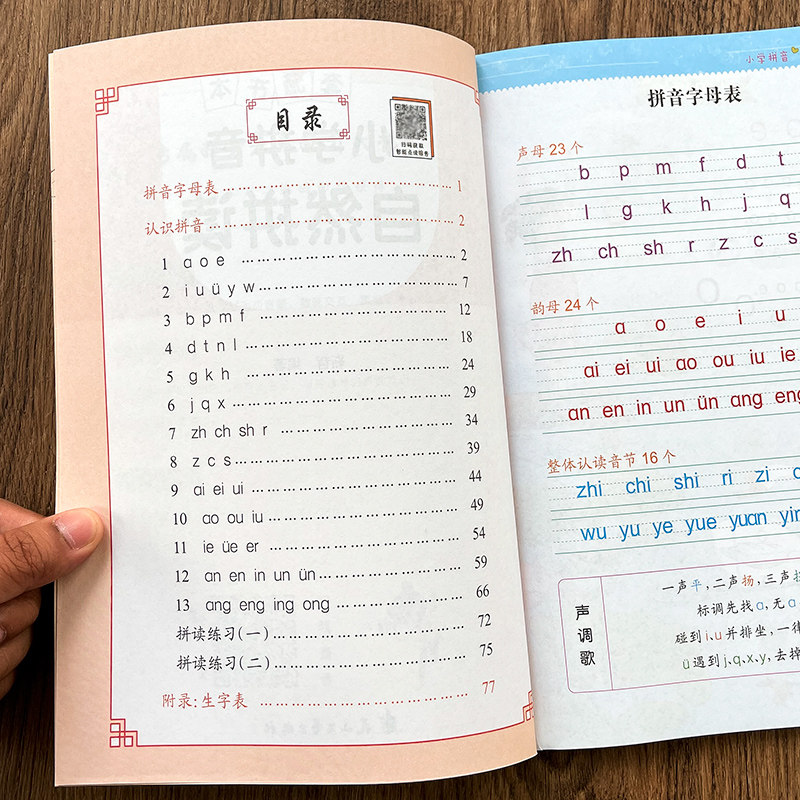 目录
扫码获取
拼音字母表 ……………………………… 1
认识拼音 ……………………………… 2
1 a o e ……………………………… 2
2 i u ü y w ……………………………… 7
3 b p m f ……………………………… 12
4 d t n l ……………………………… 18
5 g k h ……………………………… 24
6 j q x ……………………………… 29
7 zh ch sh r ……………………………… 34
8 z c s ……………………………… 39
9 ai ei ui ……………………………… 44
10 ao ou iu ……………………………… 49
11 ie üe er ……………………………… 54
12 an en in un ün ……………………………… 59
13 ang eng ing ong ……………………………… 66
拼读练习(一) ……………………………… 72
拼读练习(二) ……………………………… 75
附录:生字表 ……………………………… 77
小学拼音
拼音字母表
声母 23 个
b p m f d t
l g k h j q
zh ch sh r z c s
韵母 24 个
a o e i u
ai ei ui ao ou iu ie
an en in un ün ang eng
整体认读音节 16 个
zhi chi shi ri zi
wu yu ye yue yuan yin
声调歌
一声平,二声扬,三声
标调先找a,无a
碰到i、u并排坐,一律
ü遇到j、q、x、y,去掉